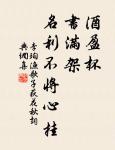 酒盈杯
書滿架
名利不將心挂
李珣漁歌子荻花秋詞
典櫩集